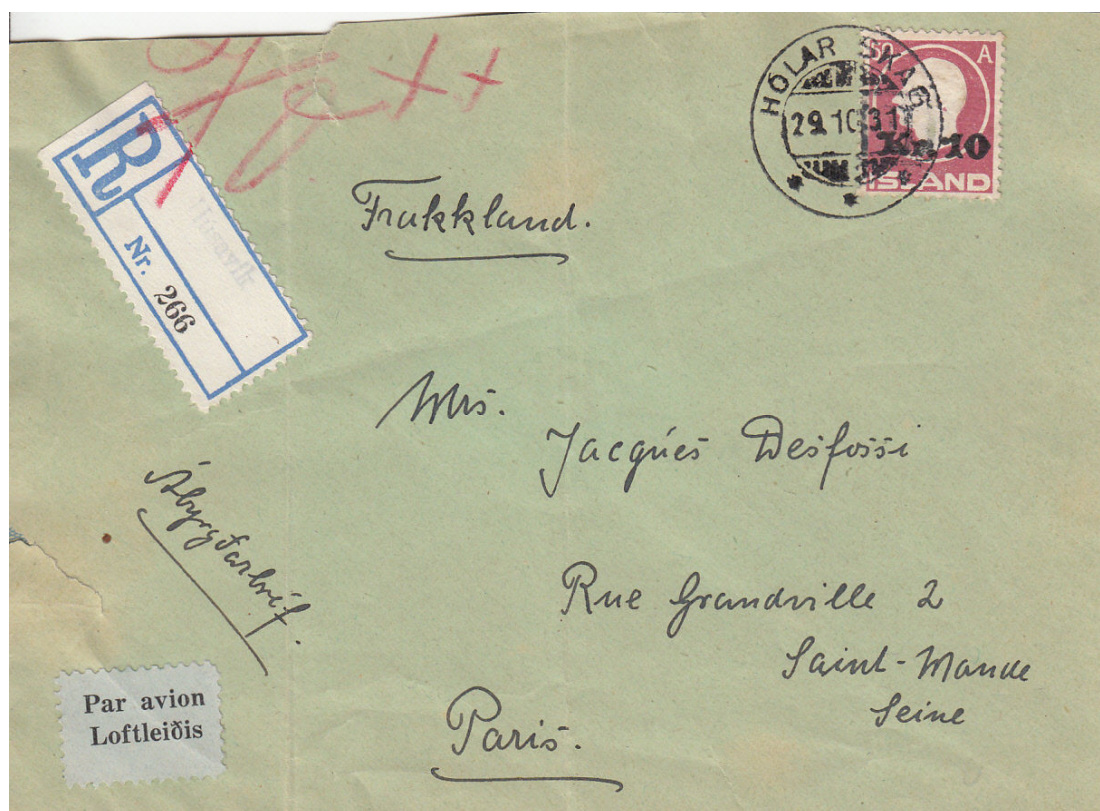 HÓLAR SKAG
29.10.31
50 A
Kr. 10
ISLAND
R
Nr. 266
Frakkland.
Jacqúes Desfossi
Rue Grandville 2
Saint-Mande
Seine
Paris.
Ábyrgðarbréf.
Par avion
Loftleiðis